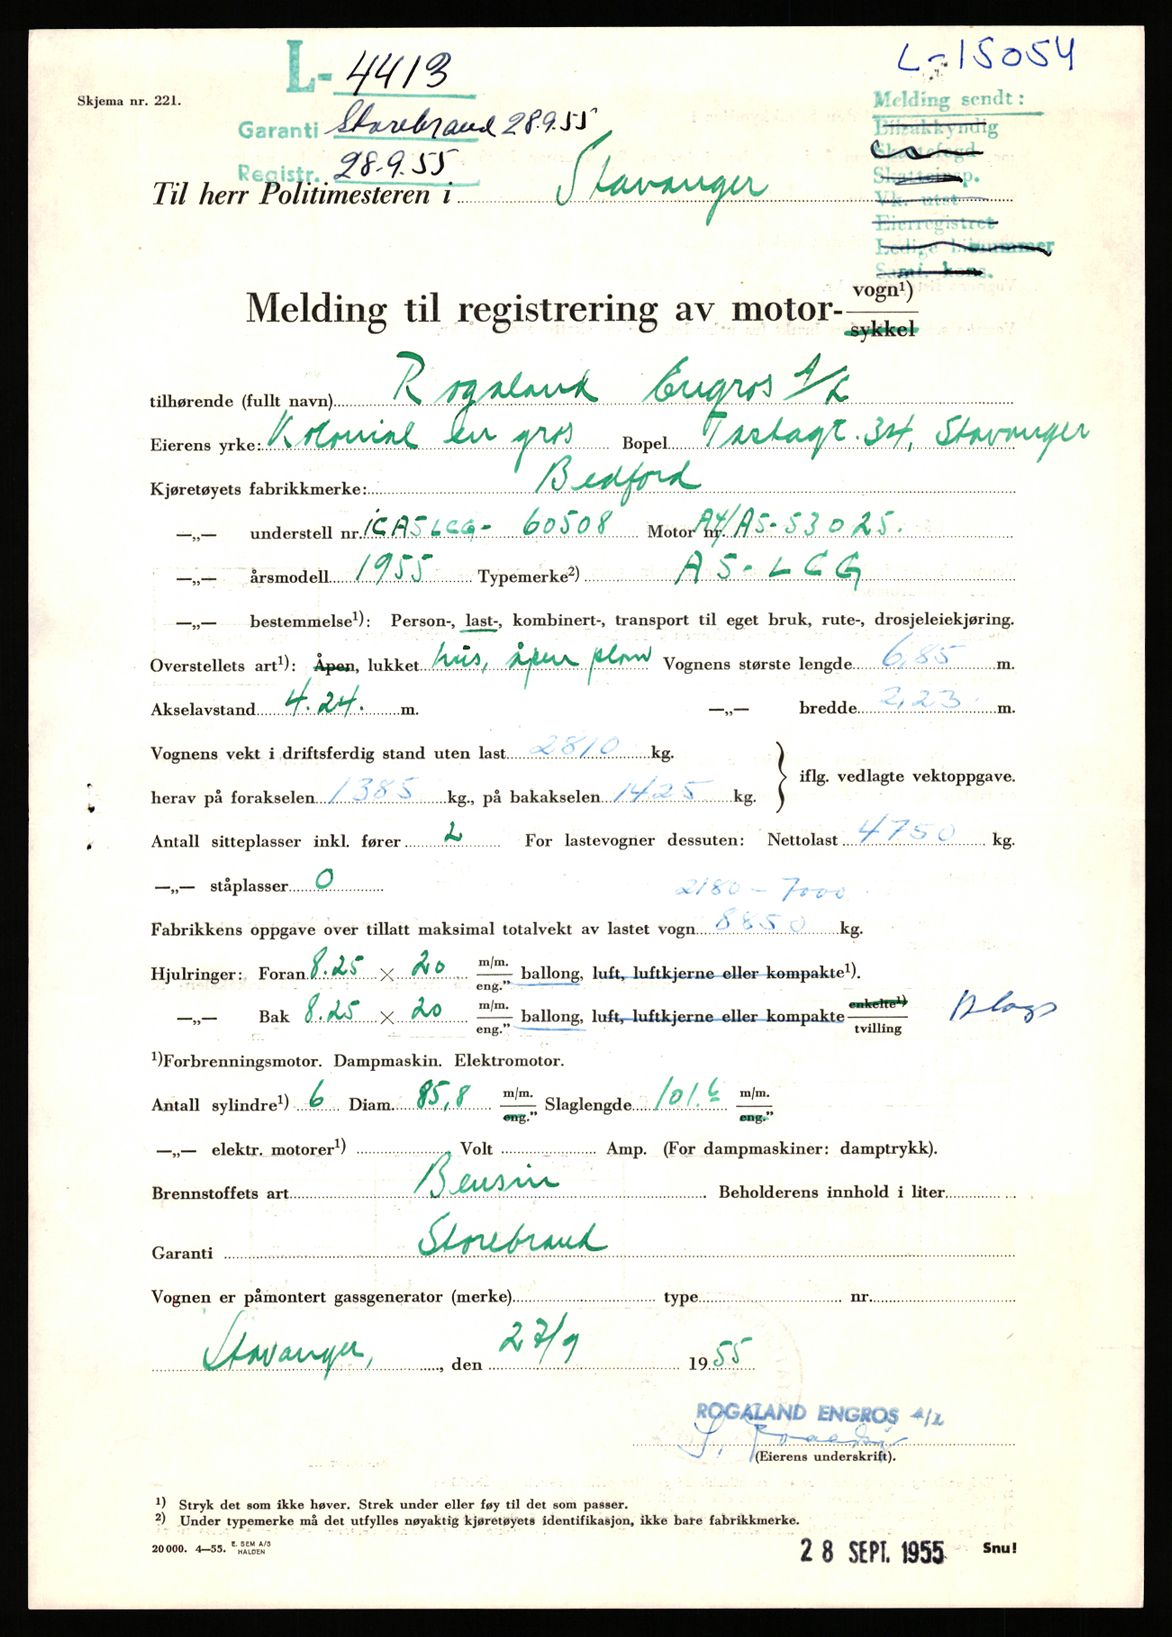 L-4413
L-15054
Skjema nr. 221.
Melding sendt:
Garanti Storebrand 28.9.55
Bilsakkyndig
Skattefogd
Registr. 28.9.55
Skatteinsp.
Til herr Politimesteren i Stavanger
Vk. utst
Eierregistret
Ledige bilnummer
Saml. kons.
Melding til registrering av motor- vogn¹)
sykkel
tilhørende (fullt navn) Rogaland Engros A/L
Eierens yrke: Kolonial en gros Bopel Tastagt. 34, Stavanger
Kjøretøyets fabrikkmerke: Bedford
—„— understell nr. ICA5LCG- 60508 Motor nr. A4/A5-53025.
—„— årsmodell 1955 Typemerke²) A5-LCG
—„— bestemmelse¹): Person-, last-, kombinert-, transport til eget bruk, rute-, drosjeleiekjøring.
Overstellets art¹): Åpen, lukket hus, åpen plan Vognens største lengde 6,85 m.
Akselavstand 4.24. m. —„— bredde 2,23 m.
Vognens vekt i driftsferdig stand uten last 2810 kg.
iflg. vedlagte vektoppgave.
herav på forakselen 1385 kg., på bakakselen 1425 kg.
Antall sitteplasser inkl. fører 2 For lastevogner dessuten: Nettolast 4750 kg.
—„— ståplasser 0 2180 - 7000
Fabrikkens oppgave over tillatt maksimal totalvekt av lastet vogn 8850 kg.
Hjulringer: Foran 8.25 × 20 m/m. eng.” ballong, luft, luftkjerne eller kompakte¹).
—„— Bak 8.25 × 20 m/m. eng.” ballong, luft, luftkjerne eller kompakte enkelte¹) tvilling
¹)Forbrenningsmotor. Dampmaskin. Elektromotor.
Antall sylindre¹) 6 Diam. 85,8 m/m. eng.” Slaglengde 101.6 m/m. eng.”
—„— elektr. motorer¹) Volt Amp. (For dampmaskiner: damptrykk).
Brennstoffets art Bensin Beholderens innhold i liter
Garanti Storebrand
Vognen er påmontert gassgenerator (merke) type nr.
Stavanger, , den 27/9 1955
ROGALAND ENGROS A/L
(Eierens underskrift).
¹) Stryk det som ikke høver. Strek under eller føy til det som passer.
²) Under typemerke må det utfylles nøyaktig kjøretøyets identifikasjon, ikke bare fabrikkmerke.
20 000. 4—55. E. SEM A/S HALDEN
28 SEPT. 1955 Snu!